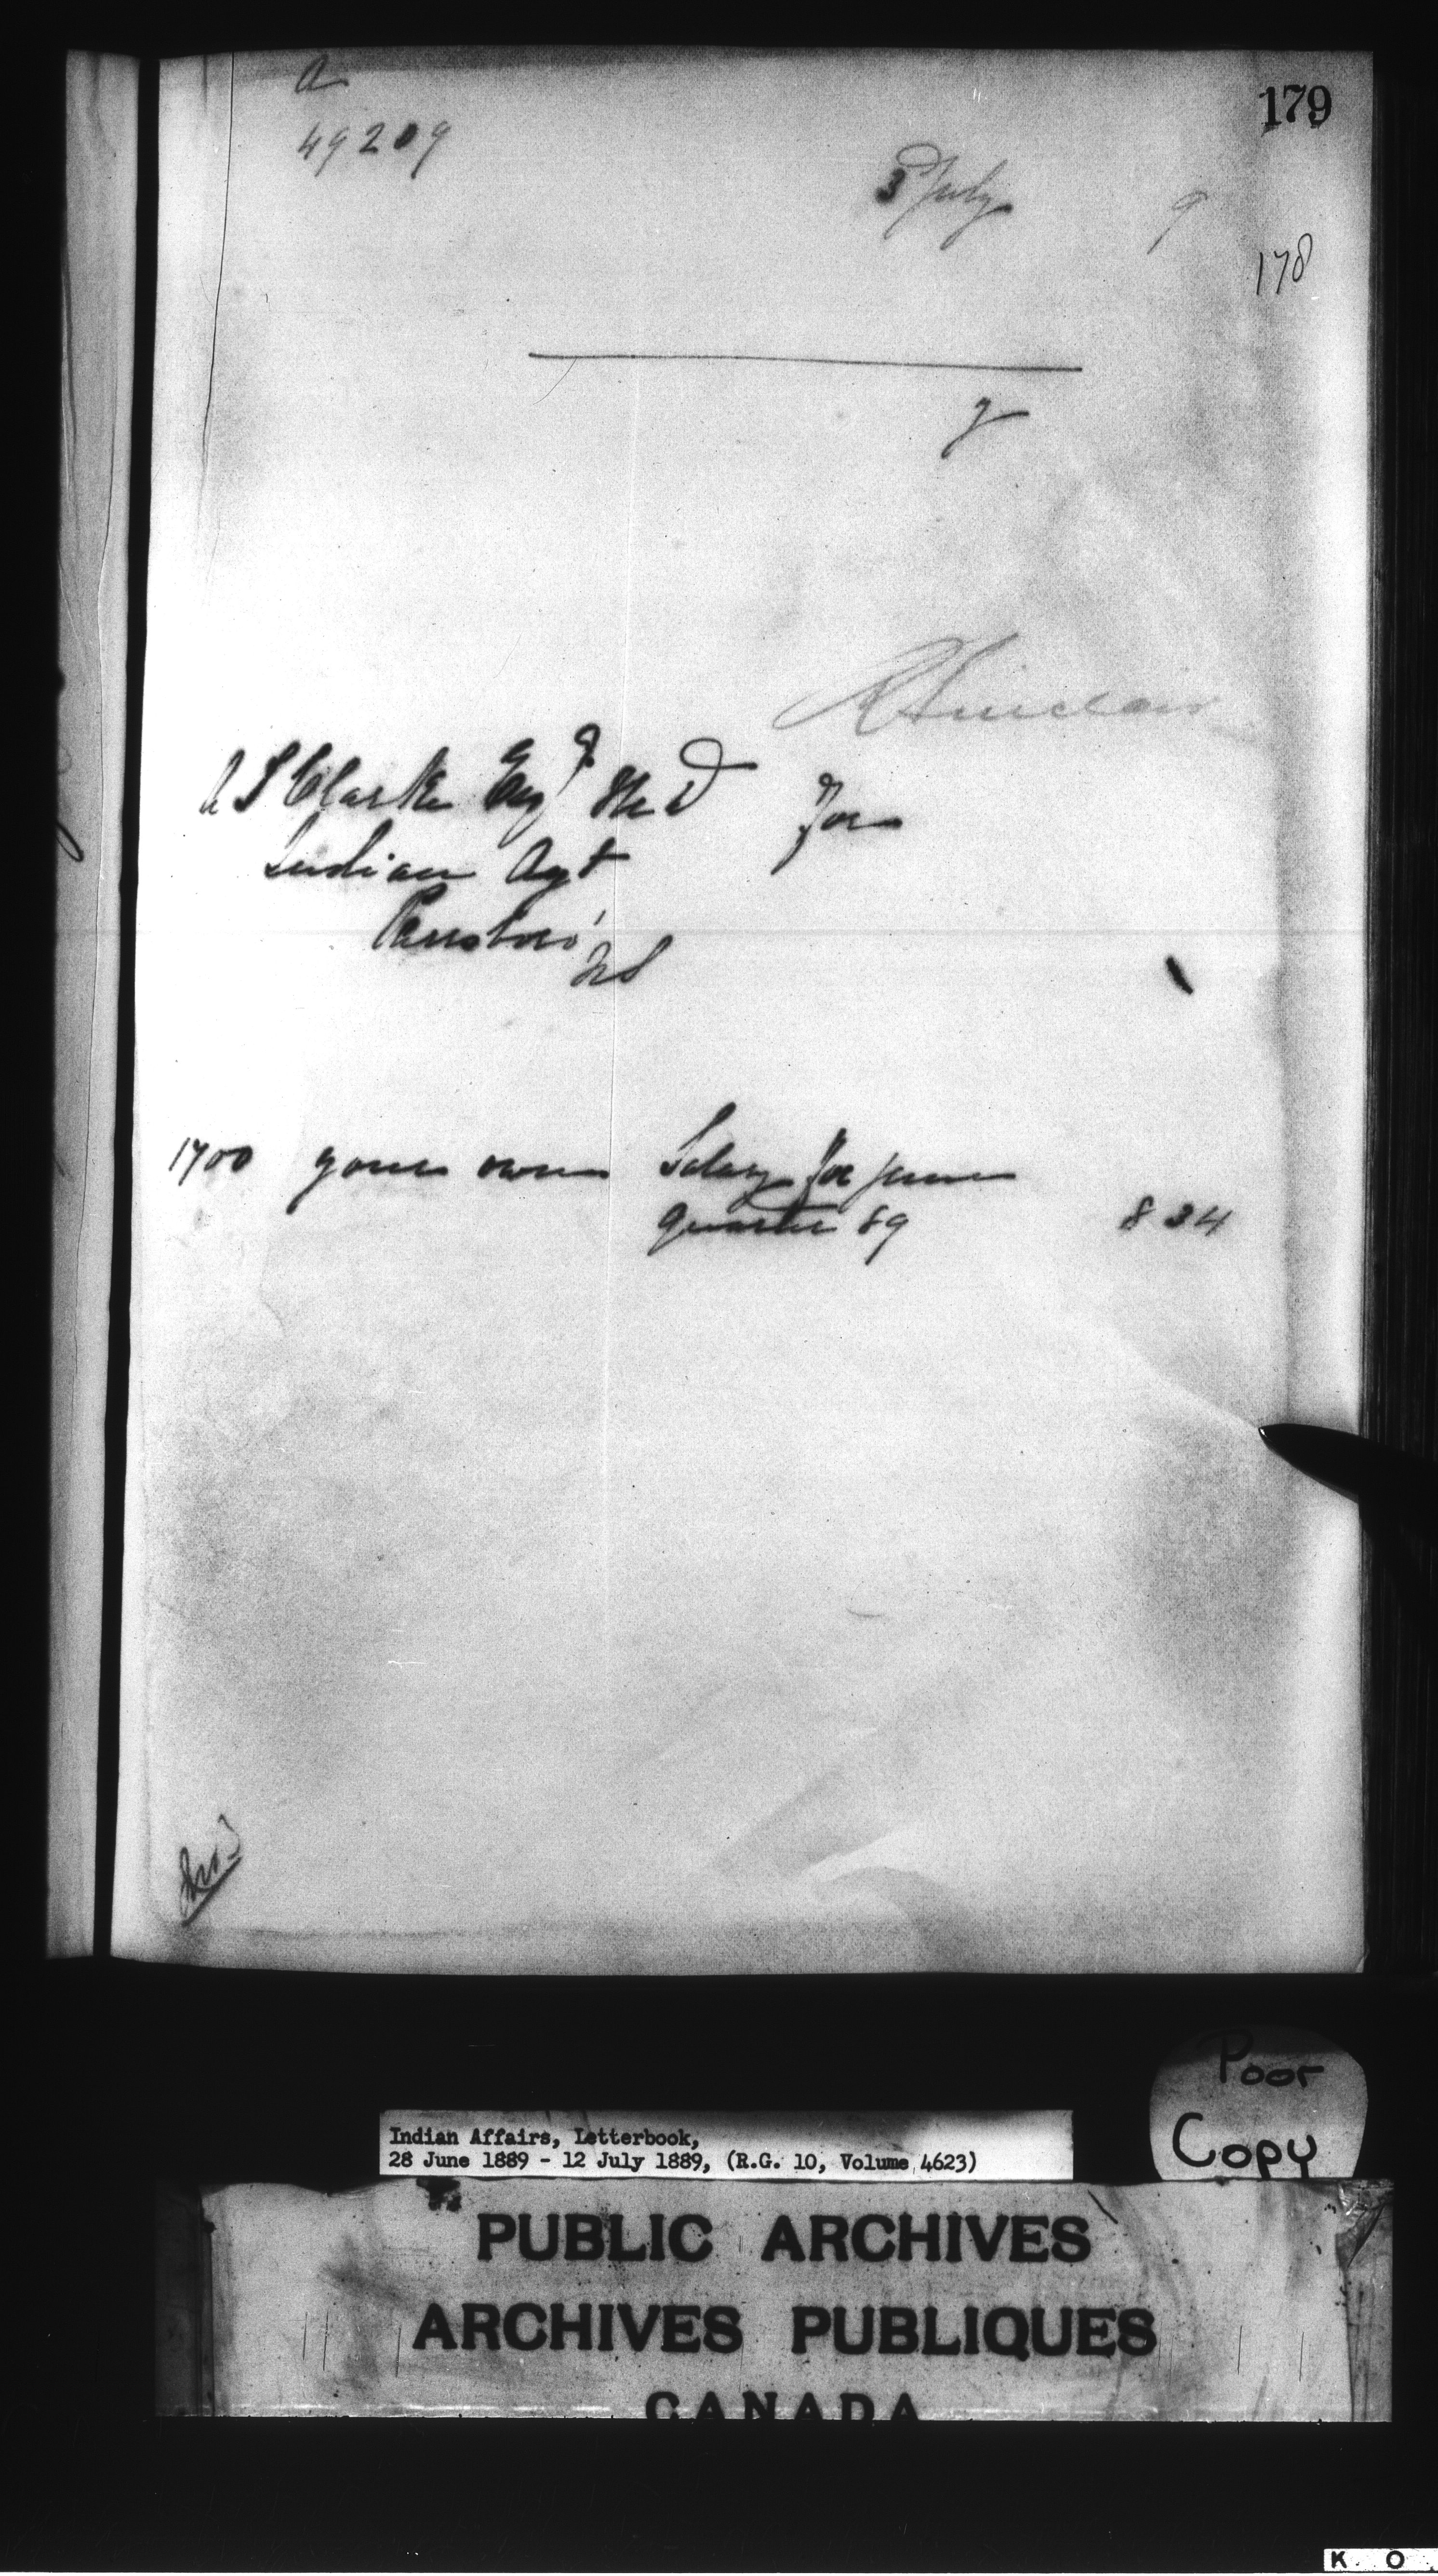 a
179
49209
3 July 9
178
y
R Sinclair
A S Clarke Esqr M D For
Indian Agt
Parrsboro'
NS
1700 your own Salary for June
quarter 89 8 34
Poor
Copy
Indian Affairs, Letterbook,
28 June 1889 - 12 July 1889, (R.G. 10, Volume 4623)
PUBLIC ARCHIVES
ARCHIVES PUBLIQUES
CANADA
K O